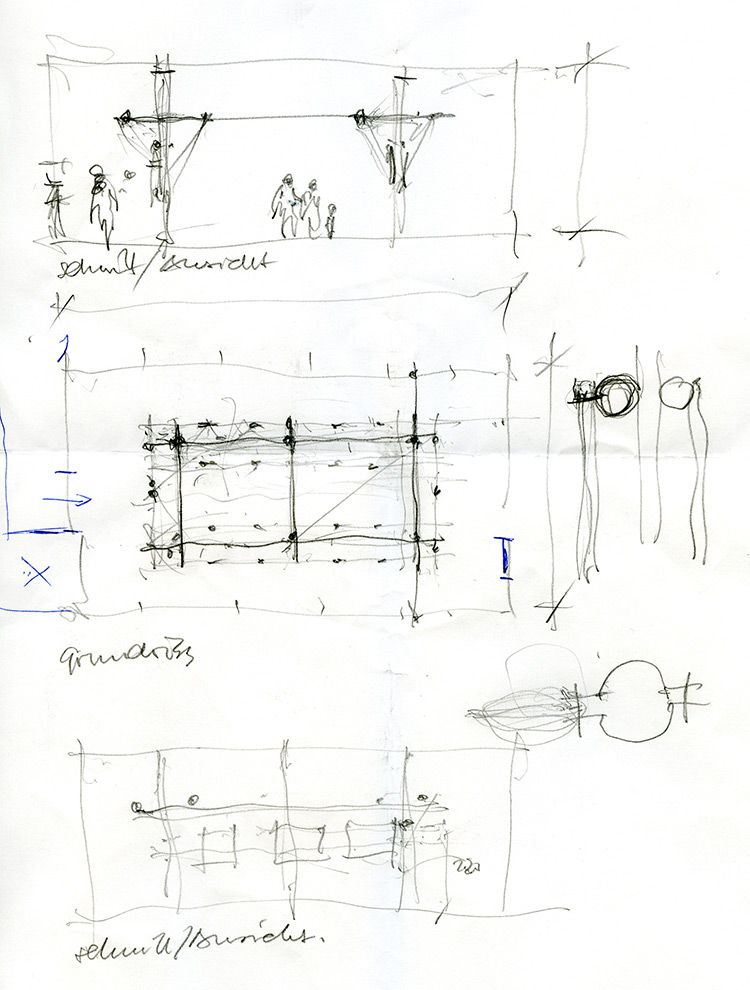 schnitt/Ansicht
grundriss
schnitt/Ansicht.